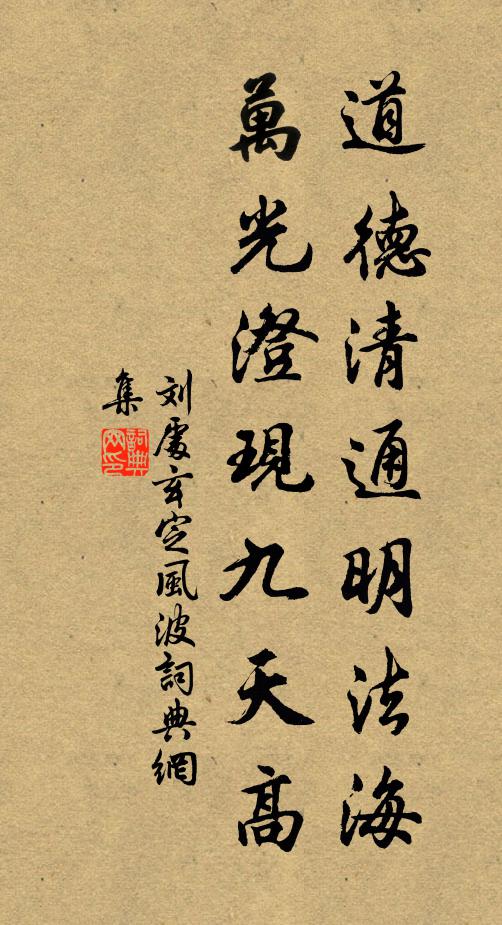 道德清通明法海
萬光澄現九天高
刘處玄定風波詞典網
集
詞典網印